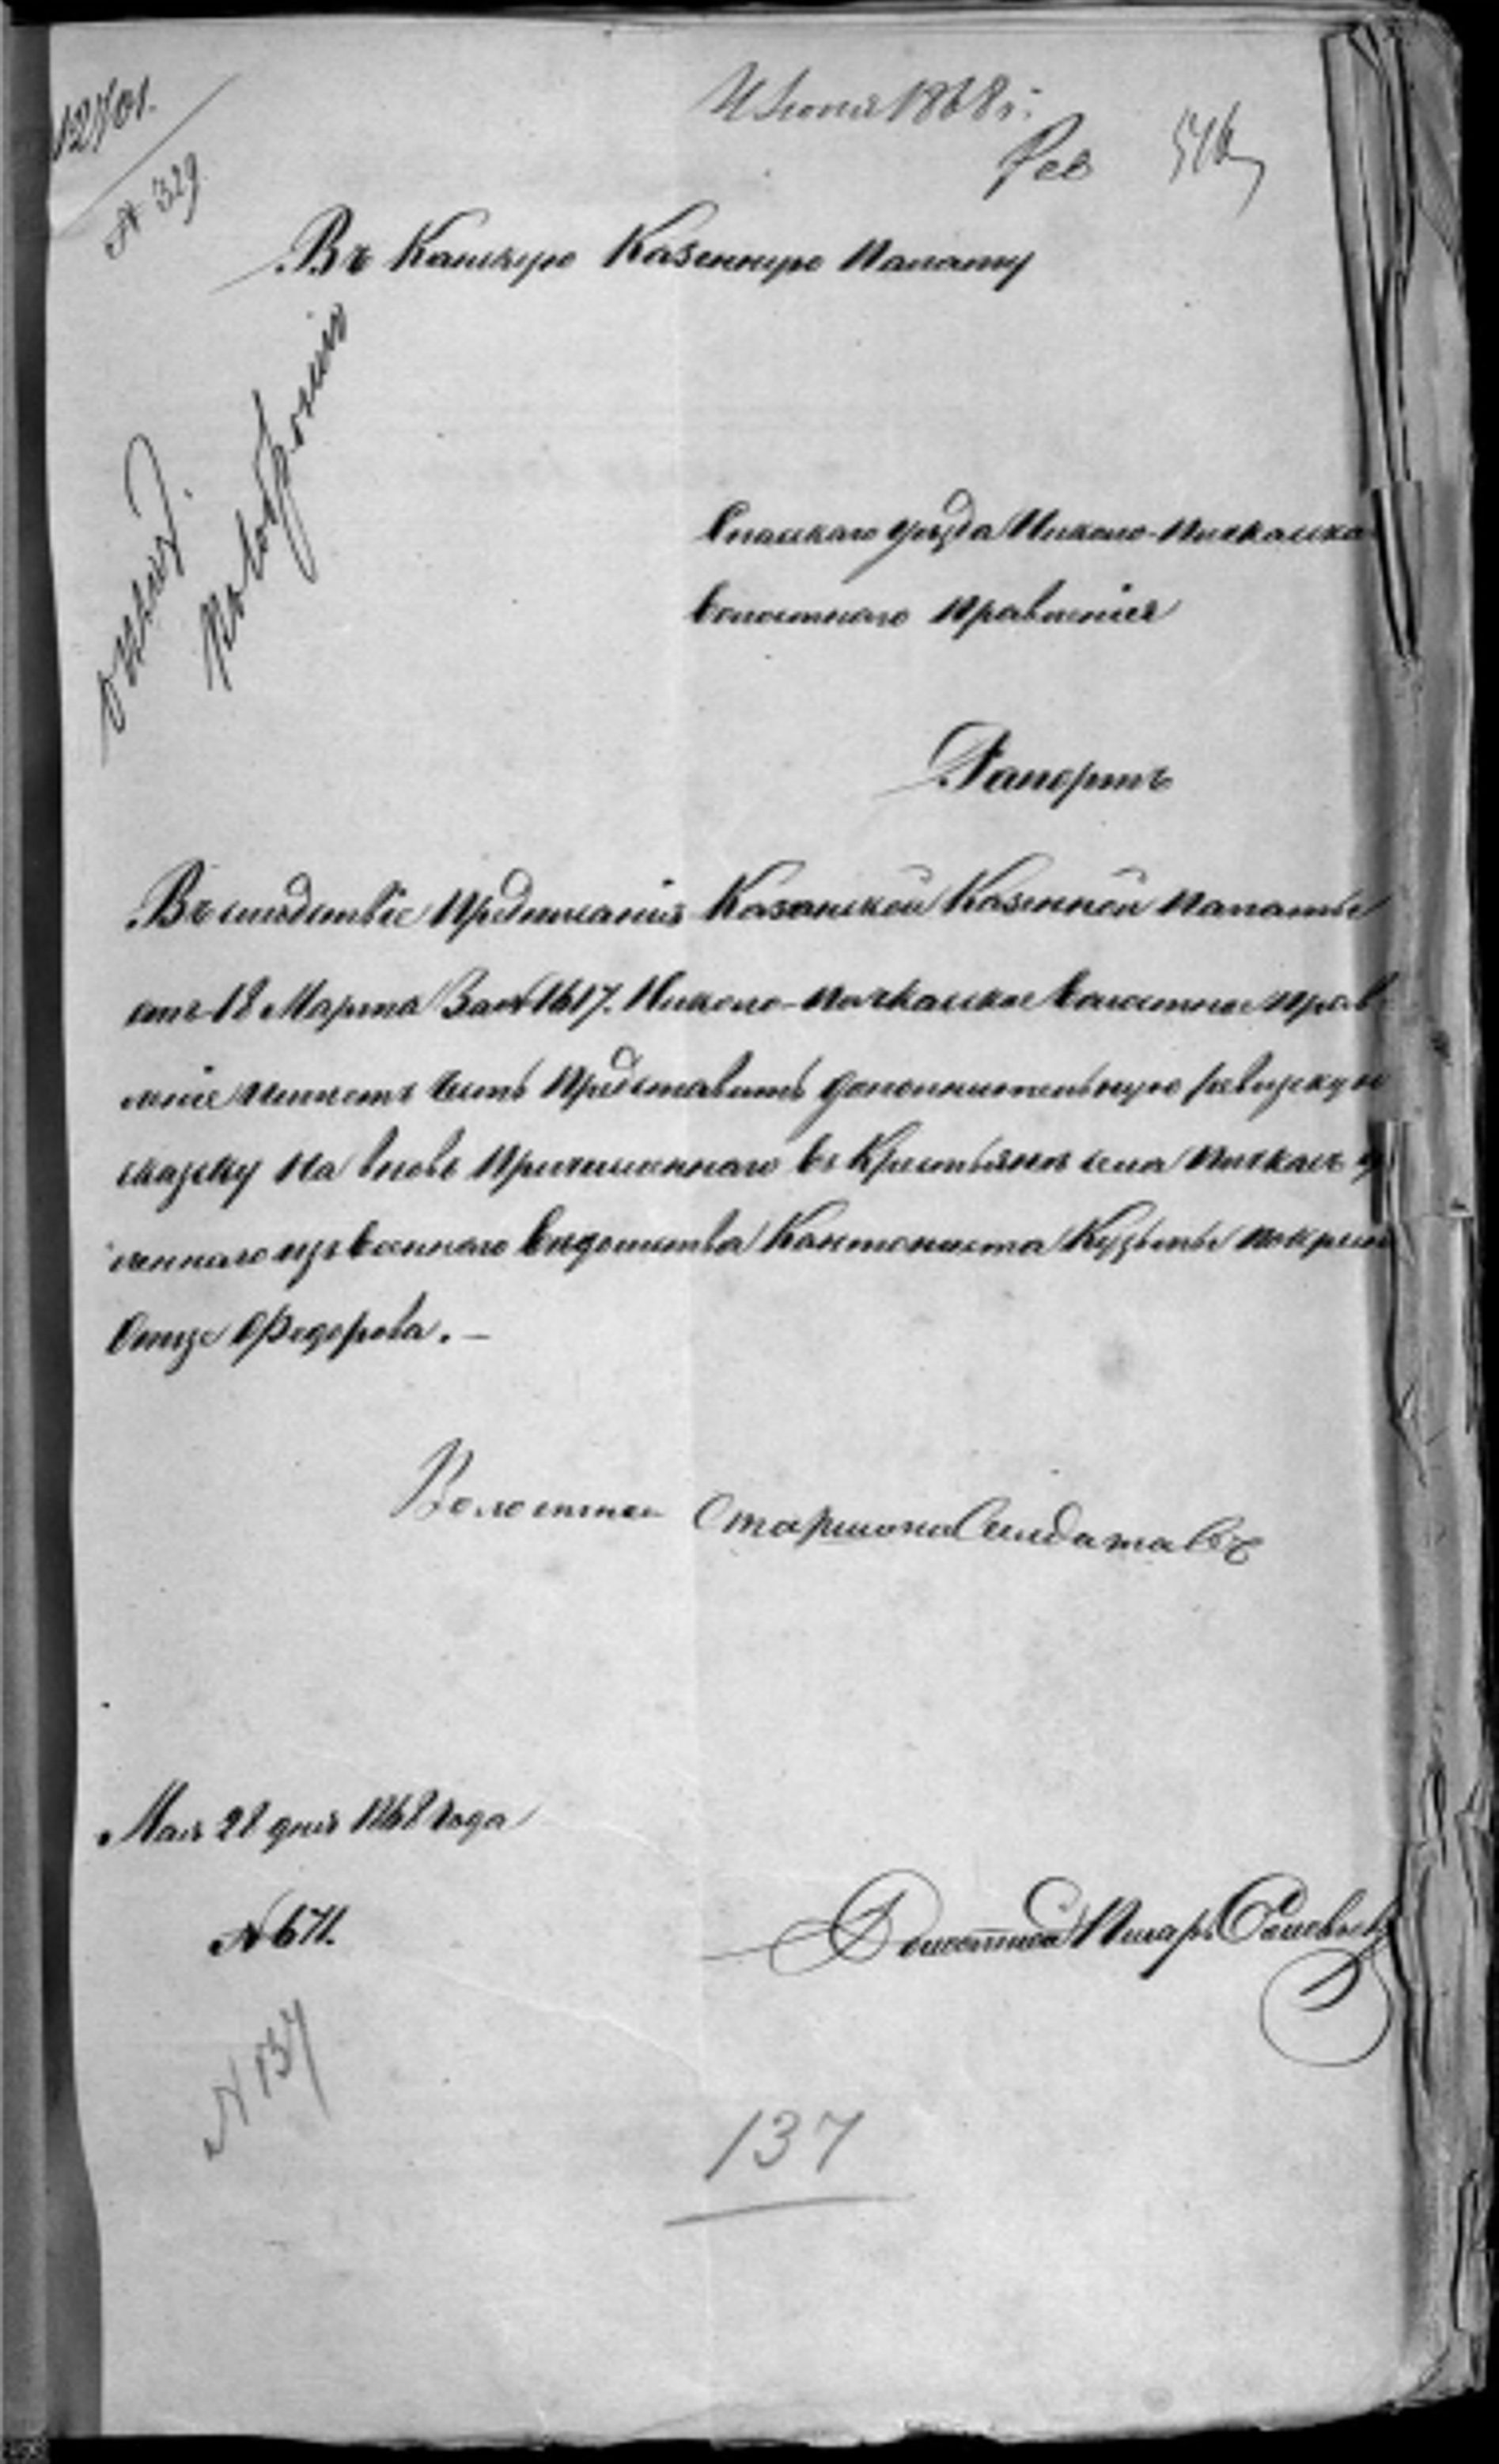 12701.
№ 329.
Июня 1868 г.
Рев
Въ Казенную Палату
Спаскаго уѣзда Николо-Пичкасска
Волостнаго Правленія
Рапортъ
Въ слѣдствіе Предписанія Казанской Казенной Палаты
отъ 18 Марта За № 1617. Николо-Пичкасское Волостное Прав
леніе имѣетъ честь Представить дополнительную ревизскую
сказку на вновь Причисленнаго въ Крестьяне села Пичкасъ
ченнаго изъ Военнаго Вѣдомства Кантониста Кузьмы по крест
Отцѣ Федорова. —
Волостной Старшина
Мая 28 дня 1868 года
№ 671.
Волостной Писарь
№ 137
137